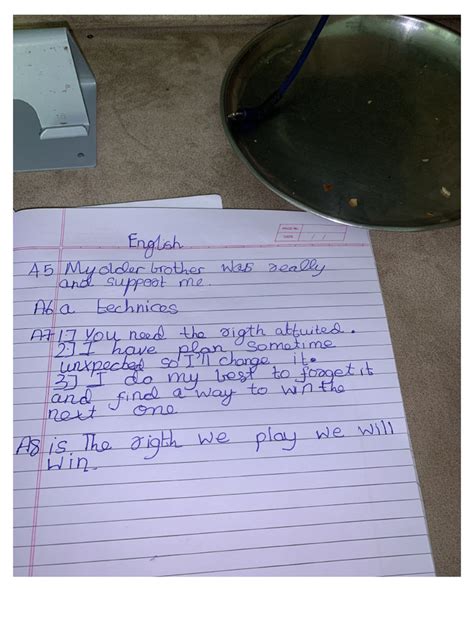 English
PAGE NO.
DATE / /
A5 My older brother was really
and support me.
A6 a technices
A7 1.] You need the rigth attuited.
2.] I have plan sometime
unxpected so I'll change it.
3.] I do my best to forget it
and find a way to win the
next one
A8 is The rigth we play we will
win.